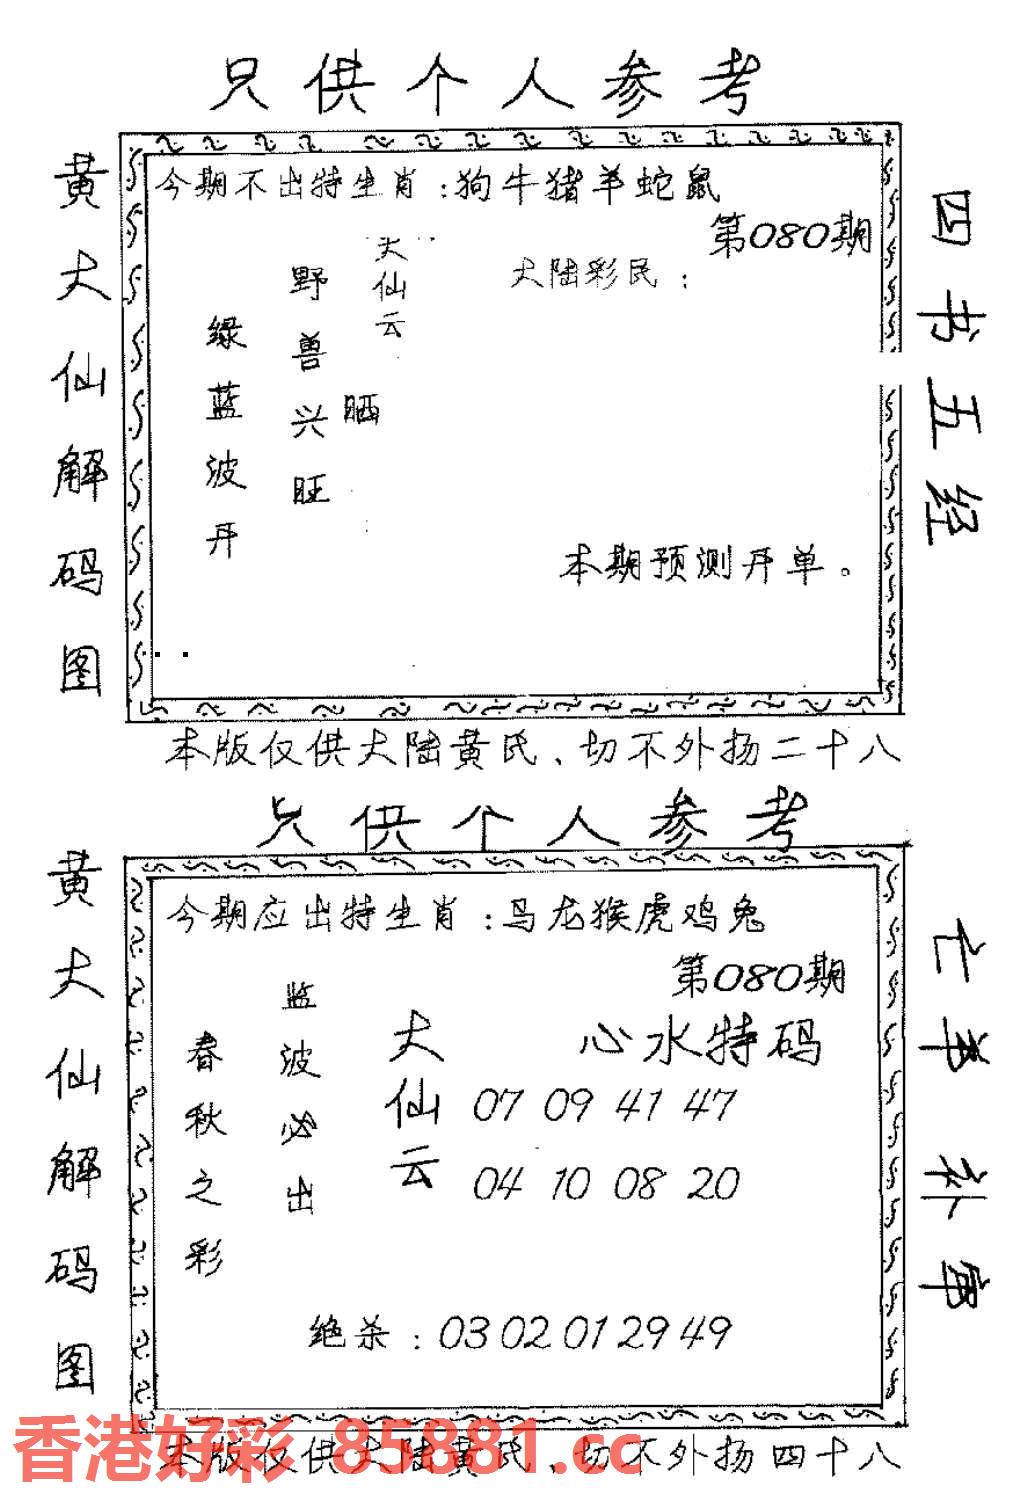 只供个人参考
黄大仙解码图
今期不出特生肖：狗牛猪羊蛇鼠
第080期
大仙云
大陆彩民：
野兽兴旺
晒
绿蓝波开
本期预测开单。
四书五经
本版仅供大陆黄氏、切不外扬二十八
只供个人参考
黄大仙解码图
今期应出特生肖：马龙猴虎鸡兔
第080期
心水特码
大仙云
07 09 41 47
04 10 08 20
监波必出
春秋之彩
绝杀：03 02 01 29 49
亡羊补牢
本版仅供大陆黄氏、切不外扬四十八
香港好彩 85881.cc